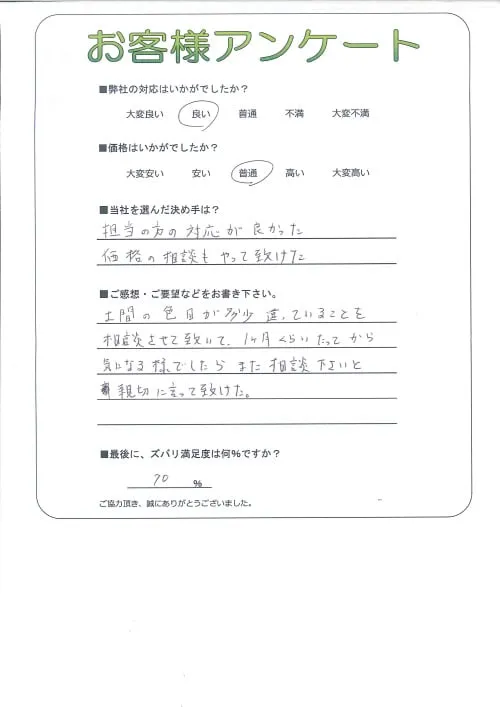 お客様アンケート
■弊社の対応はいかがでしたか?
大変良い 良い 普通 不満 大変不満
■価格はいかがでしたか?
大変安い 安い 普通 高い 大変高い
■当社を選んだ決め手は?
担当の方の対応が良かった
価格の相談もやって致けた
■ご感想・ご要望などをお書き下さい。
土間の色目が多少違っていることを
相談させて致いて、1ヶ月くらいたってから
気になる様でしたらまた相談下さいと
親切に言って致けた。
■最後に、ズバリ満足度は何%ですか?
70 %
ご協力頂き、誠にありがとうございました。